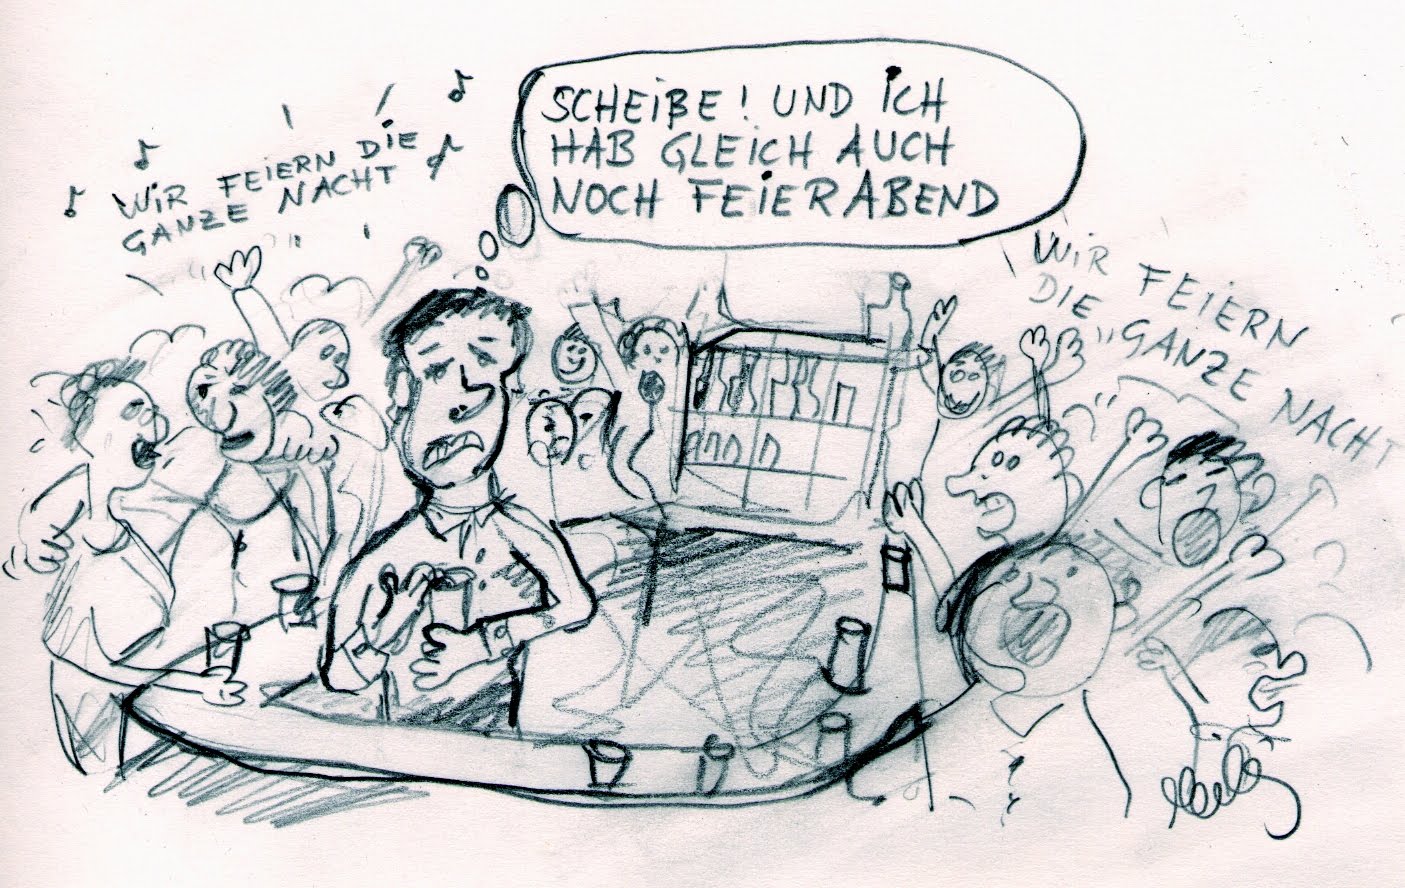 SCHEIßE! UND ICH
HAB GLEICH AUCH
NOCH FEIERABEND
WIR FEIERN DIE
GANZE NACHT
WIR FEIERN
DIE GANZE NACHT